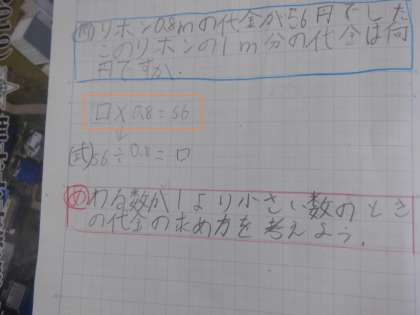 問リボン0.8mの代金が56円でした
このリボンの1m分の代金は何
円ですか.
□×0.8=56
↓
(式)56÷0.8=□
めわる数が1より小さい数のとき
の代金の求め方を考えよう.